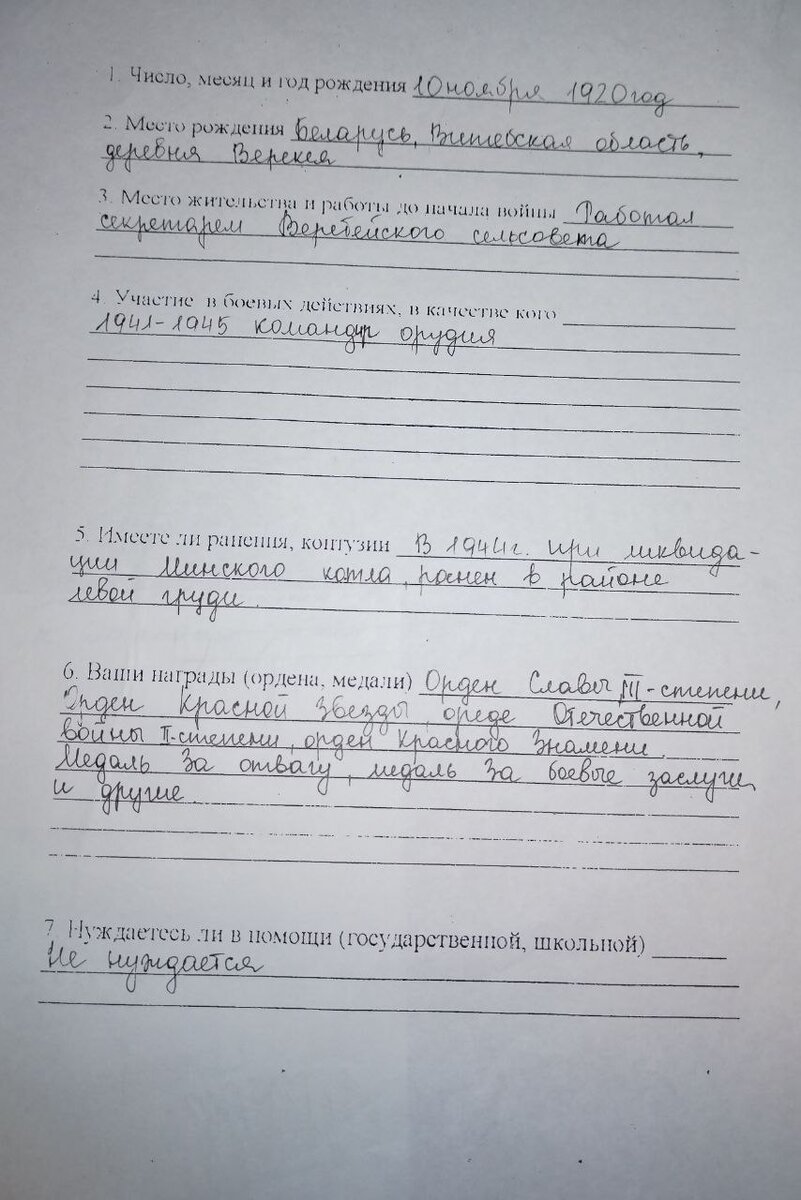 1. Число, месяц и год рождения 10 ноября 1920 год
2. Место рождения Беларусь, Витебская область,
деревня Верекея
3. Место жительства и работы до начала войны Работал
секретарём Веребейского сельсовета
4. Участие в боевых действиях, в качестве кого
1941-1945 командир орудия
5. Имеете ли ранения, контузии В 1944г. при ликвида-
ции Минского котла, ранен в районе
левой груди.
6. Ваши награды (ордена, медали) Орден Славы III-степени,
Орден Красной Звезды, ореде Отечественной
войны II-степени, орден Красного Знамени.
Медаль За отвагу, медаль За боевые заслуги,
и другие
7. Нуждаетесь ли в помощи (государственной, школьной)
Не нуждается